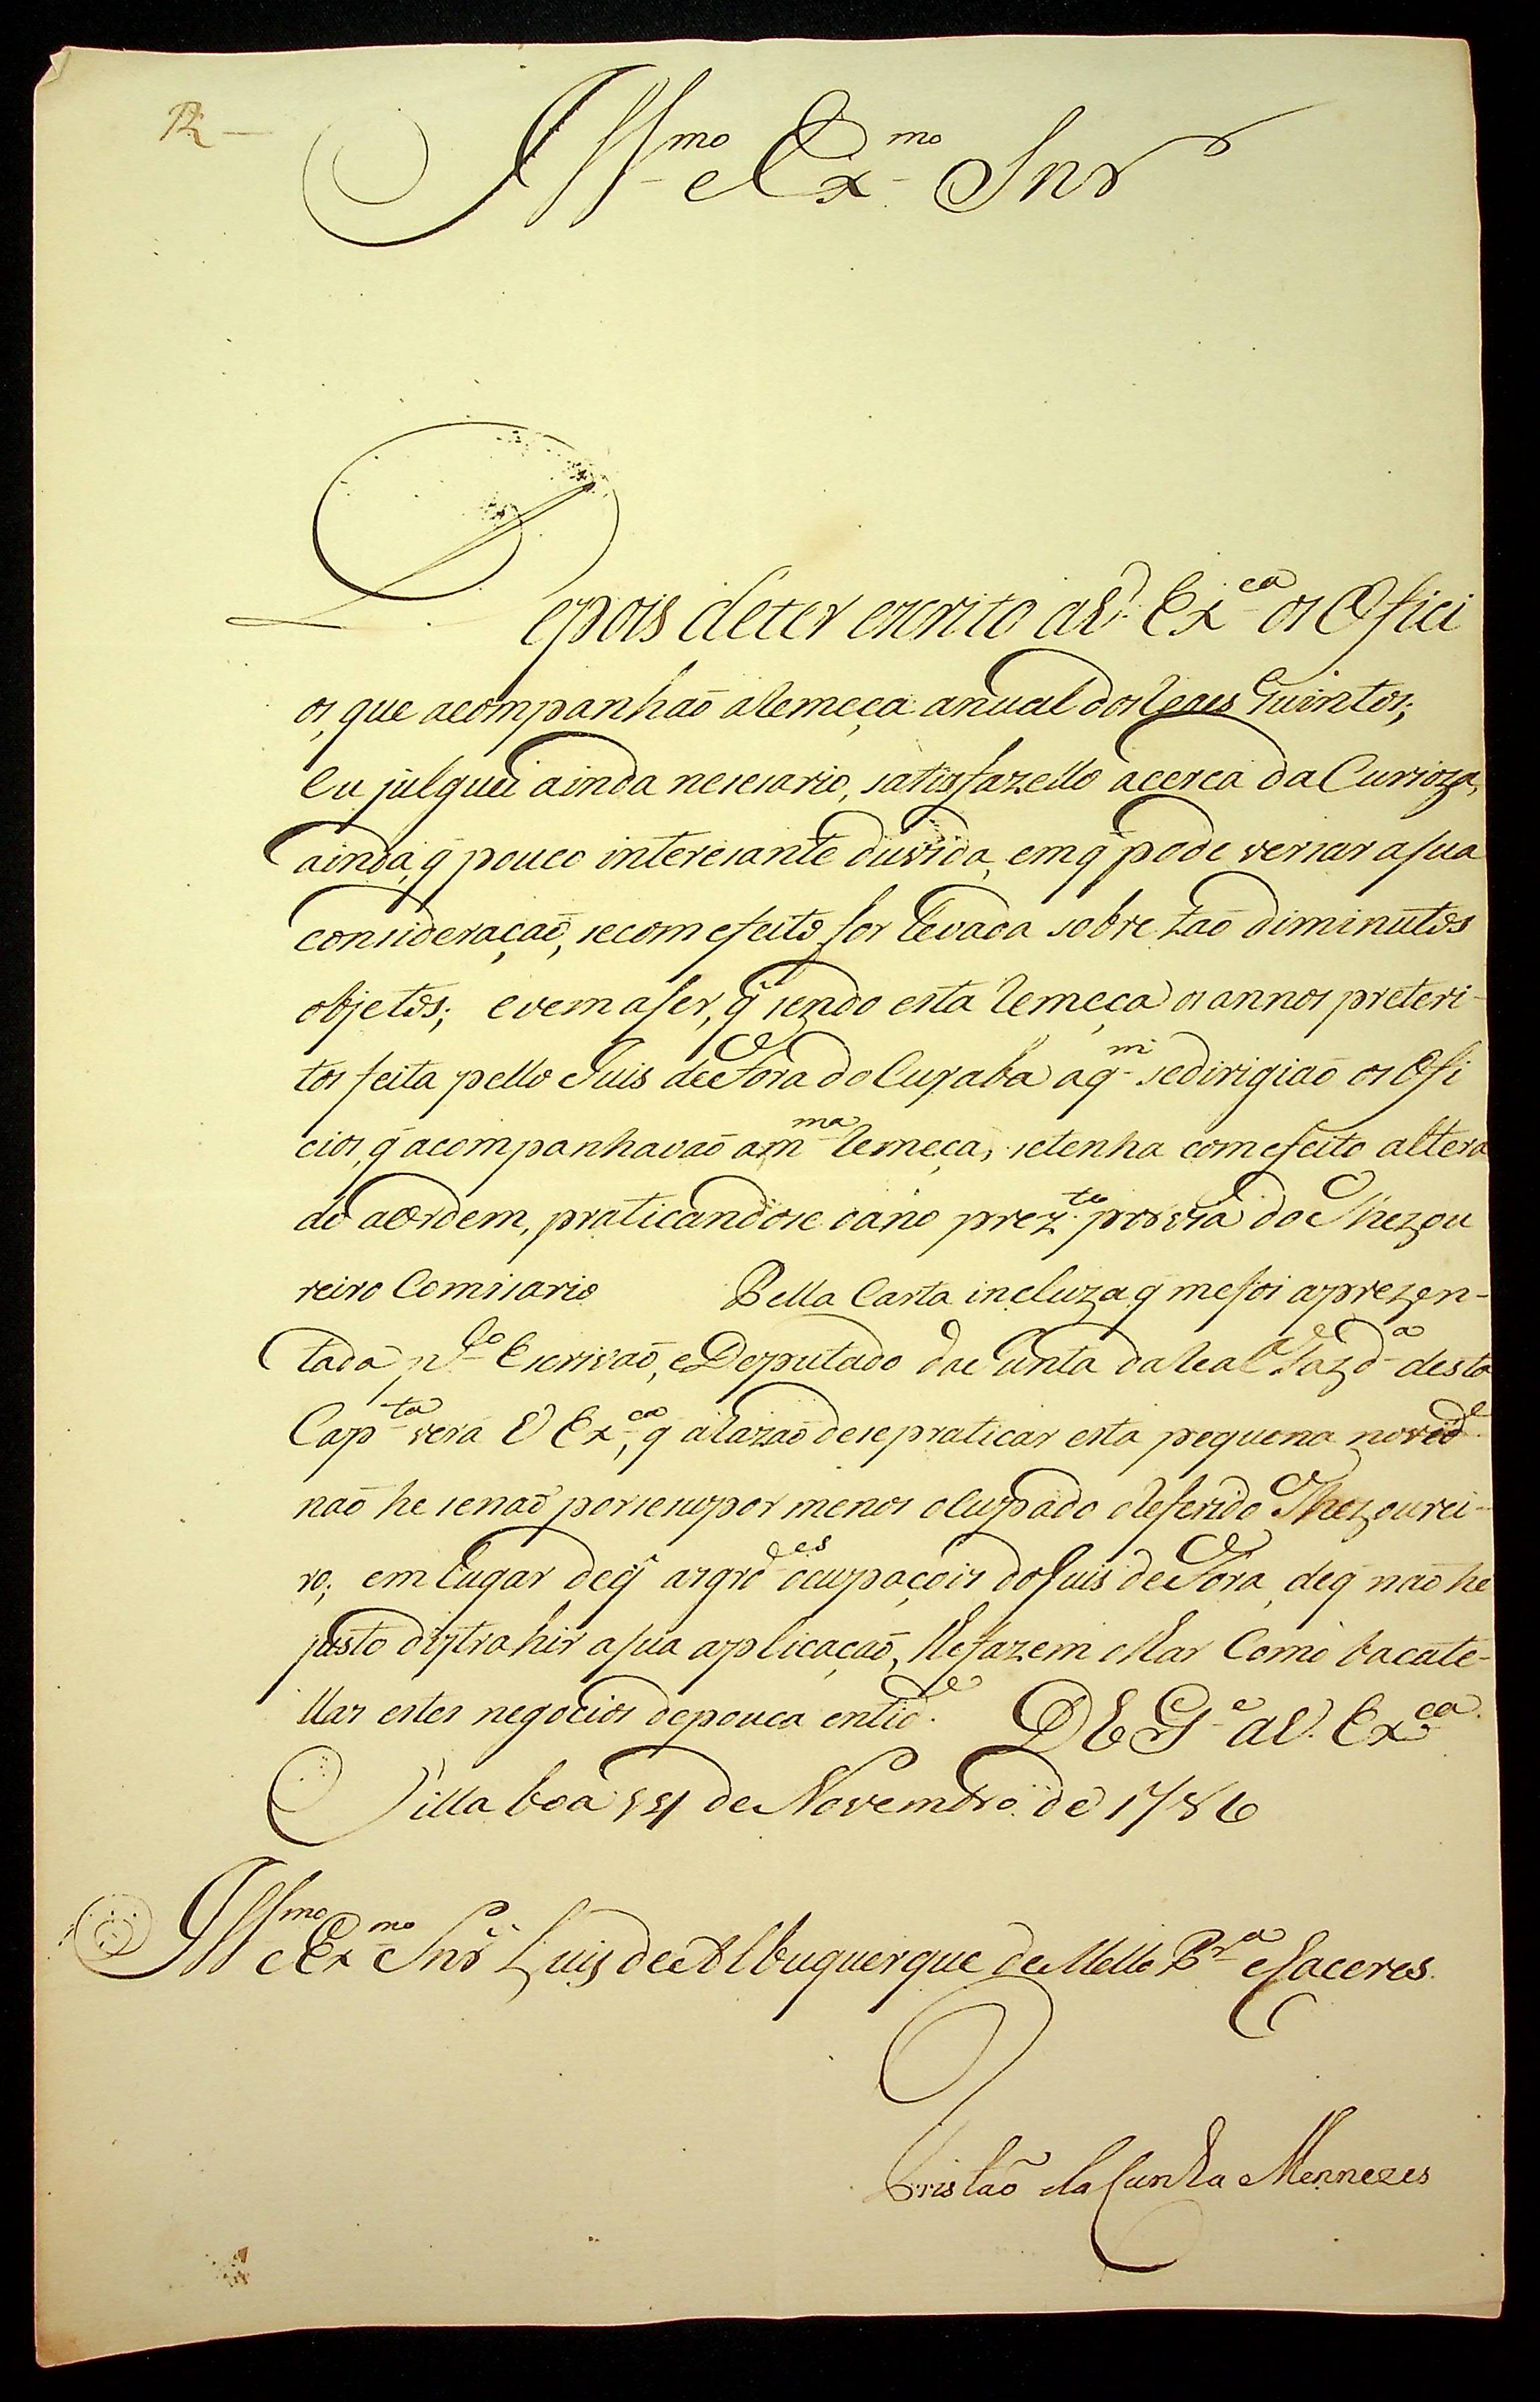 R.
Ill.mo e Ex.mo Snr
Depois deter escrito aV. Ex.ca os Ofici
os, que acompanhaõ aRemeça anual dos Reaes Quintos;
Eu julguei ainda nesesario, satisfazello acerca da Curioza,
ainda, q̃ pouco interesante duvida, emq̃ pode versar asua
consideraçaõ, secom efeito for levada sobre taõ diminutos
objetos; evem aser, q̃ sendo esta Remeça os annos preteri-
tos feita pello Juis deFora do Cuyaba aq.m sedirigiaõ os Ofi
cios, q̃ acompanhavaõ am.ma Remeça, setenha com efeito altera
do aOrdem, praticandose oano prez.te por via do Thezou
reiro Comisario Pella Carta incluza q̃ mefoi aprezen-
tada p.lo Escrivaõ, eDeputado da Junta da Real Fazd.a desta
Cap.ta verá V Ex.ca, q̃ aRazaõ dese praticar esta pequena novid.e
naõ he senaõ porsesupor menos ocupado oReferido Thezourei-
ro; em Lugar deq̃ asgrd.es ocupaçois doJuis deFora, deq̃ naõ he
justo distrahir asua aplicaçaõ, lhefazem olhar Como bacate-
llas estes negocios depouca entid.e DEG.e aV. Ex.ca
Villa boa 14 de Novembro de 1786
Ill.mo e Ex.mo Snr Luis deAlbuquerque deMello P.ra eCaceres.
Tristaõ da Cunha Mennezes